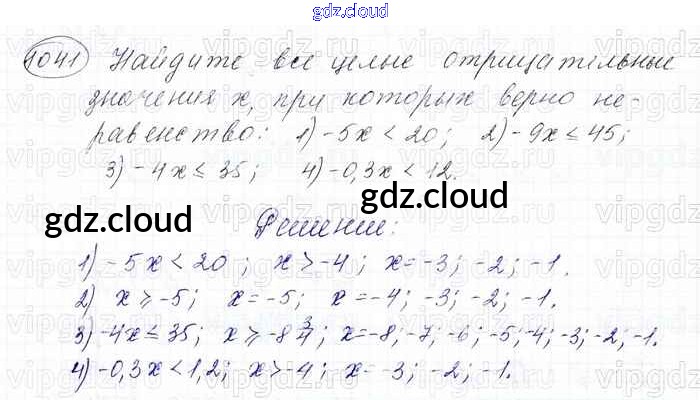 gdz.cloud
1041 Найдите все целые отрицательные
значения x, при которых верно не-
равенство: 1) -5x < 20; 2) -9x ≤ 45;
3) -4x ≤ 35; 4) -0,3x < 12.
gdz.cloud gdz.cloud
Решение:
1) -5x < 20; x > -4; x = -3; -2; -1.
2) x ≥ -5; x = -5; x = -4; -3; -2; -1.
3) -4x ≤ 35; x ≥ -8 3/4; x = -8; -7; -6; -5; -4; -3; -2; -1.
4) -0,3x < 1,2; x > -4; x = -3; -2; -1.